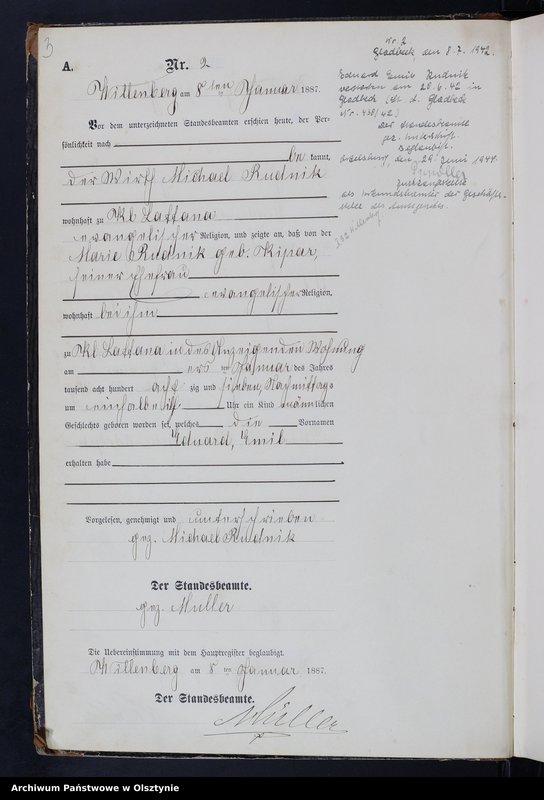 3
A.
Nr. 2
Willenberg am 8 ten Januar 1887.
Vor dem unterzeichneten Standesbeamten erschien heute, der Per-
sönlichkeit nach
be kannt,
der Wirth Michael Rudnik
wohnhaft zu Kl Lattana
evangelischer Religion, und zeigte an, daß von der
Marie Rudnik geb. Kipar,
seiner Ehefrau
evangelischer Religion,
wohnhaft bei ihm
zu Kl Lattana in des Anzeigenden Wohnung
am ersten Januar des Jahres
tausend acht hundert acht zig und sieben, Nachmittags
um Uhr ein Kind männlichen
Geschlechts geboren worden sei, welches die Vornamen
Eduard, Emil
erhalten habe
Vorgelesen, genehmigt und unterschrieben
gez. Michael Rudnik
Der Standesbeamte.
gez. Müller
Die Uebereinstimmung mit dem Hauptregister beglaubigt.
Willenberg am 8 ten Januar 1887.
Der Standesbeamte.
Müller
Nr. 2
Gladbeck, den 8.7.1942.
Eduard Emil Rudnik
verstorben am 28.6.42 in
Gladbeck (St. A. Gladbeck
Nr. 438/42)
Der Standesbeamte
gez. Unterschrift.
Beglaubigt.
Ortelsburg, den 29. Juni 1944
Justizangestellte
als Urkundsbeamter der Geschäfts-
stelle des Amtsgerichts
Archiwum Państwowe w Olsztynie